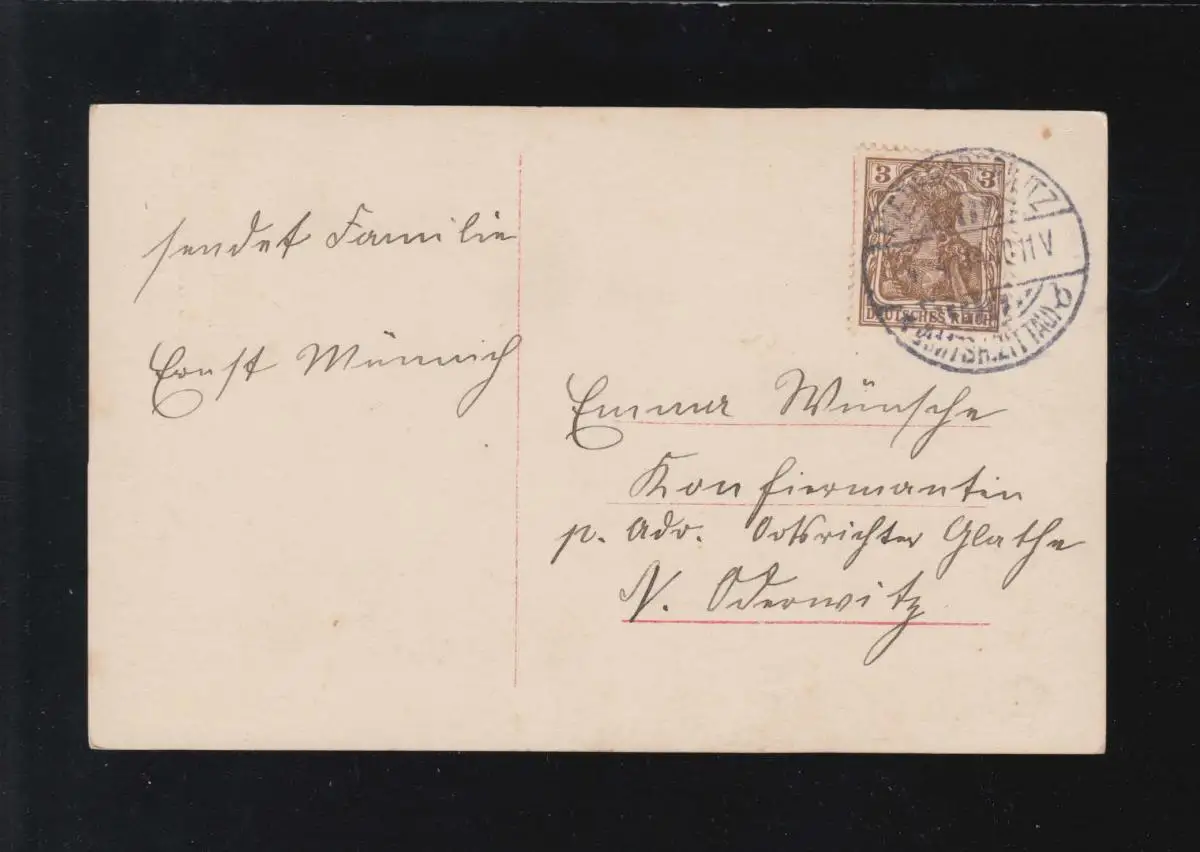 sendet Familie
Ernst Münnich
3 3
DEUTSCHES REICH
11V
b
AMTSH. ZITTAU
Emma Wünsche
Konfiermantin
p. Adr. Ortsrichter Glathe
N. Oderwitz